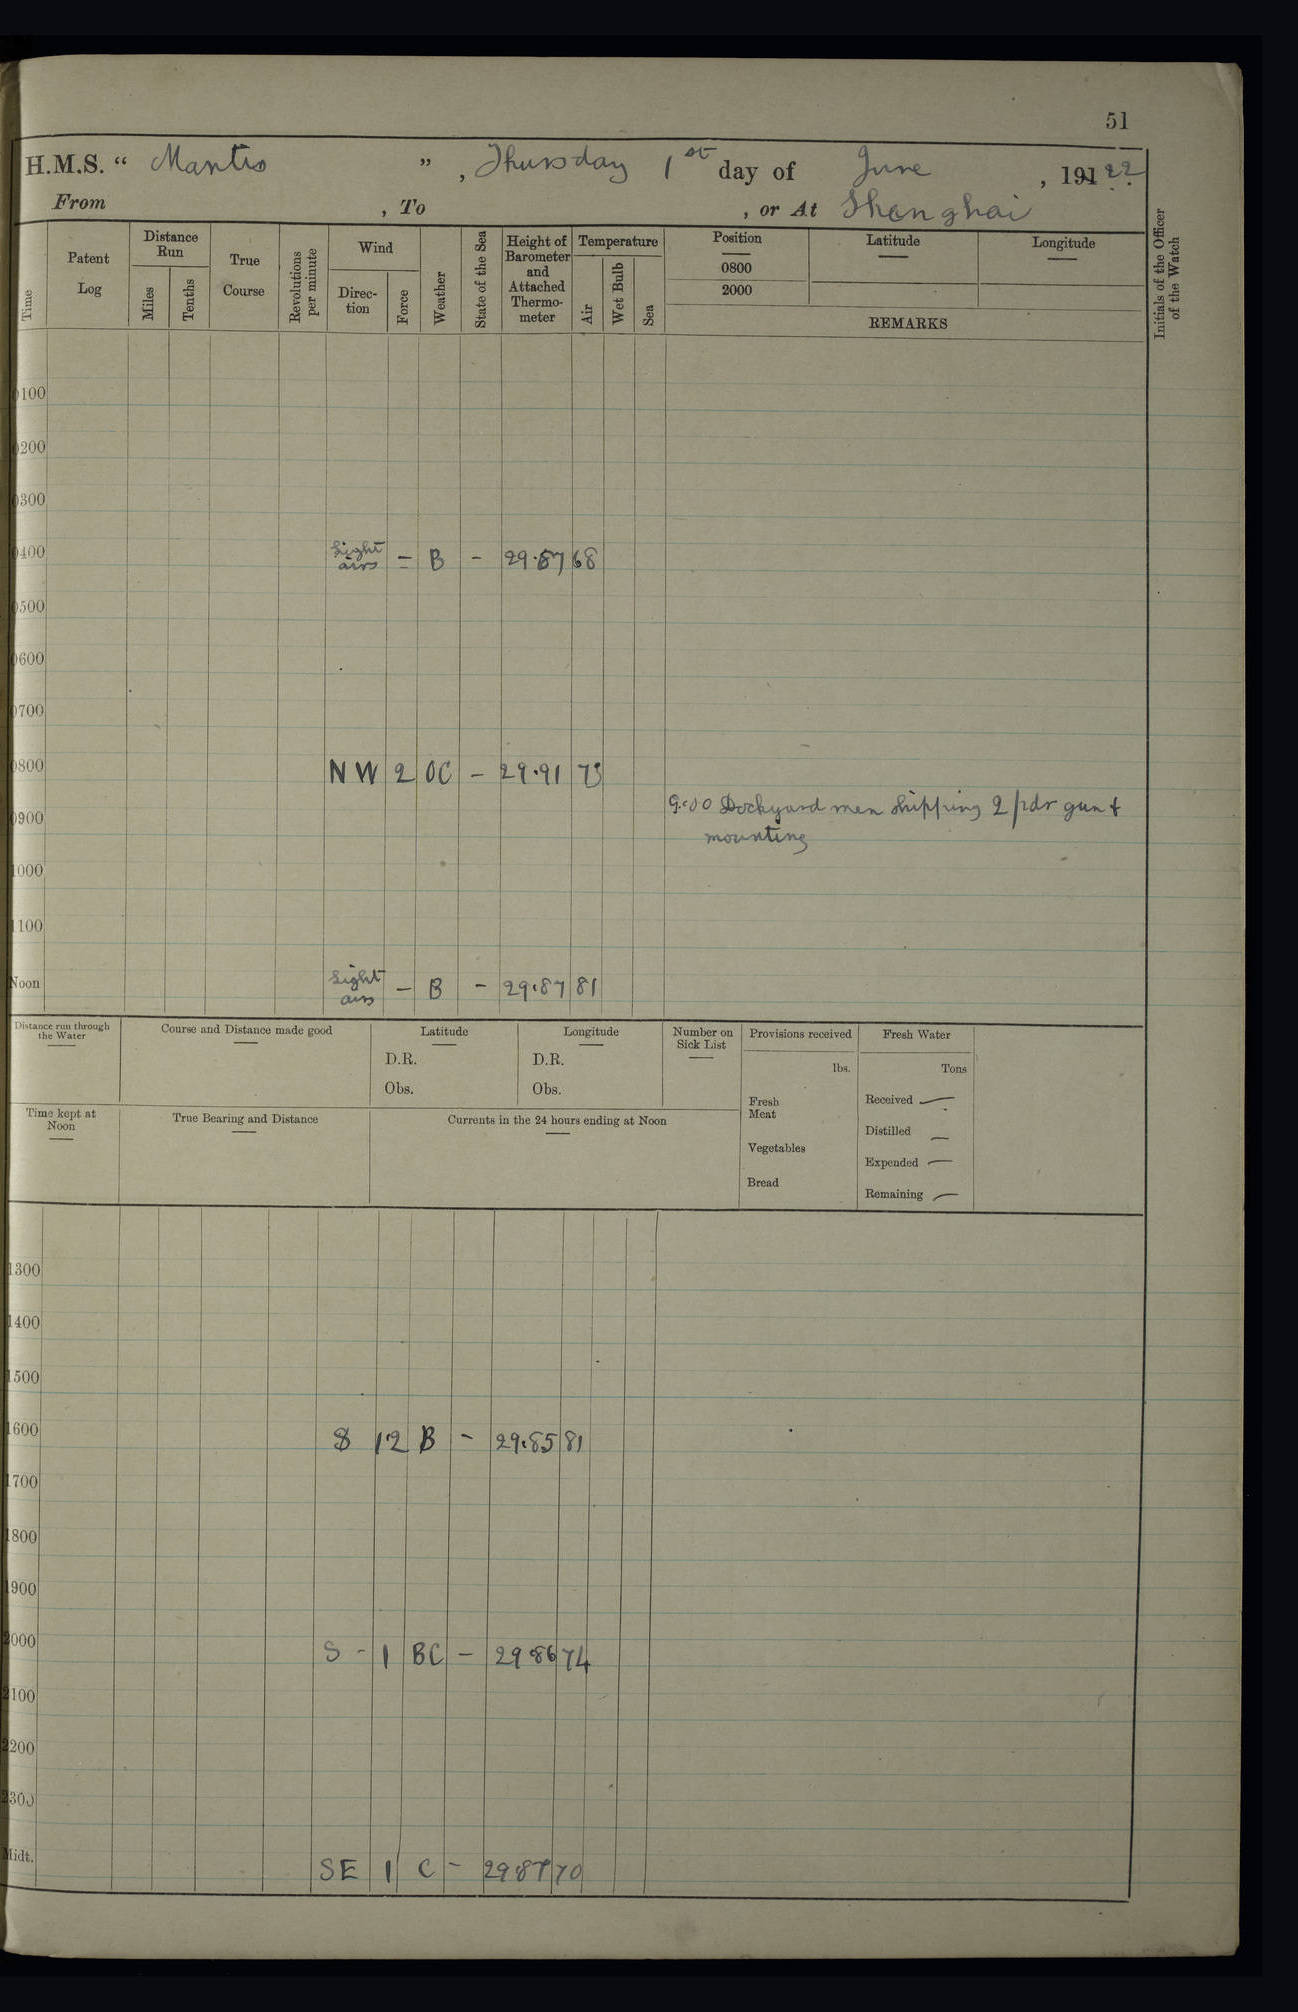 51
H.M.S. “ Mantis ” , Thursday 1st day of June , 191 22
From , To , or At Shanghai
Time
Patent Log
Distance Run
Miles
Tenths
True Course
Revolutions per minute
Wind
Direc-tion
Force
Weather
State of the Sea
Height of Barometer and Attached Thermo-meter
Temperature
Air
Wet Bulb
Sea
Position
0800
2000
Latitude
Longitude
REMARKS
Initials of the Officer of the Watch
0100
0200
0300
0400 Light airs = B - 29.87 68
0500
0600
0700
0800 NW 2 OC - 29.91 73
9.00 Dockyard men shipping 2 pdr gun &
0900
mounting
1000
1100
Noon Light airs - B - 29.87 81
Distance run through the Water
Course and Distance made good
Latitude
D.R.
Obs.
Longitude
D.R.
Obs.
Number on Sick List
Provisions received
lbs.
Fresh Meat
Vegetables
Bread
Fresh Water
Tons
Received —
Distilled —
Expended —
Remaining —
Time kept at Noon
True Bearing and Distance
Currents in the 24 hours ending at Noon
1300
1400
1500
1600 S 1.2 B - 29.85 81
1700
1800
1900
2000 S - 1 BC - 29.86 74
2100
2200
2300
Midt. SE 1 C - 29.87 70